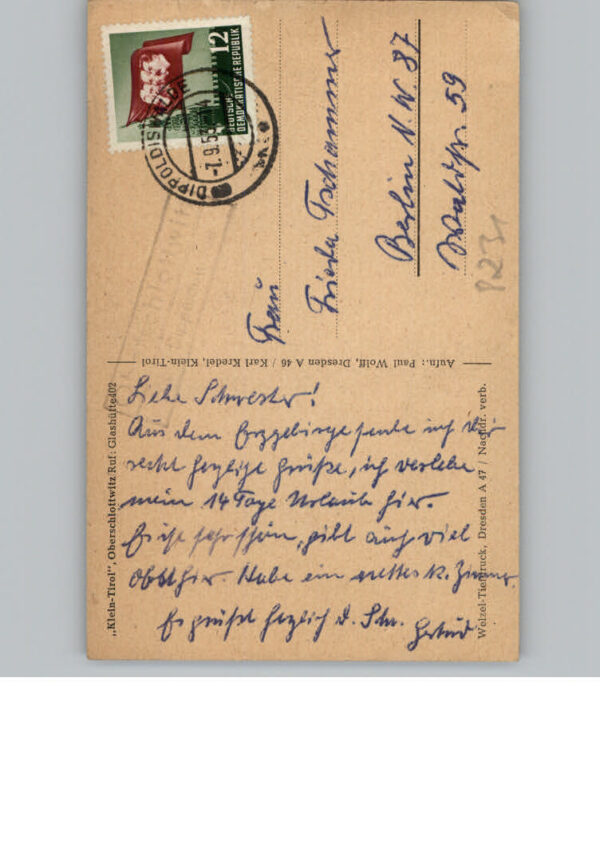 12
DEUTSCHE
DEMOKRATISCHE REPUBLIK
DIPPOLDISWALDE
-7.9.53
Frau
Frieda Tschammer
Berlin N.W. 87
Waldstr. 59
Aufn.: Paul Wolff, Dresden A 46 / Karl Kredel, Klein-Tirol
Liebe Schwester!
Aus dem Erzgebirge sende ich dir
recht herzliche Grüße, ich verlebe
mein 14 Tage Urlaub hier.
Es ist sehr schön, gibt auch viel
Obst hier. Habe ein nettes k. Zimmer.
Es grüßt herzlich d. Schw. Gertrud
„Klein-Tirol“, Oberschlottwitz Ruf: Glashütte 402
Welzel-Tiefdruck, Dresden A 47 / Nachdr. verb.